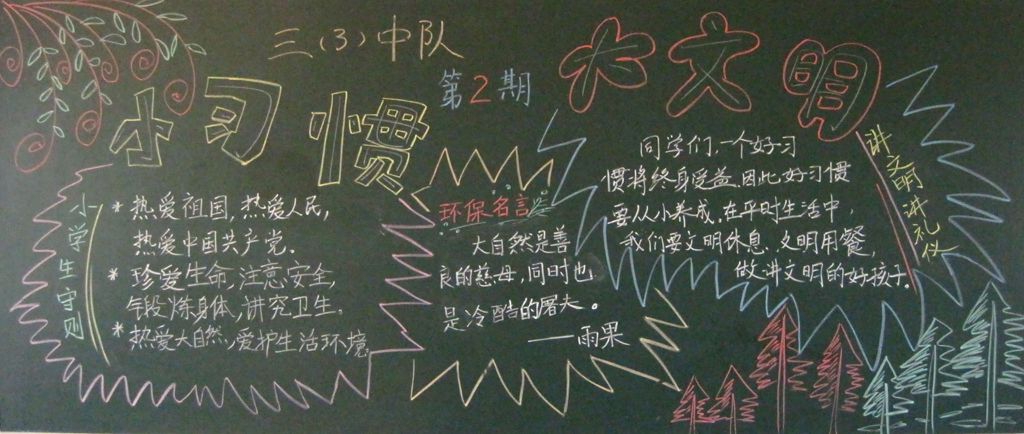 三(3)中队
第2期
小习惯
大文明
小学生守则
* 热爱祖国,热爱人民,
热爱中国共产党.
* 珍爱生命,注意安全,
锻炼身体,讲究卫生.
* 热爱大自然,爱护生活环境.
环保名言
大自然是善
良的慈母,同时也
是冷酷的屠夫。
——雨果
同学们,一个好习
惯将终身受益.因此,好习惯
要从小养成.在平时生活中,
我们要文明休息.文明用餐,
做讲文明的好孩子.
讲文明讲礼仪